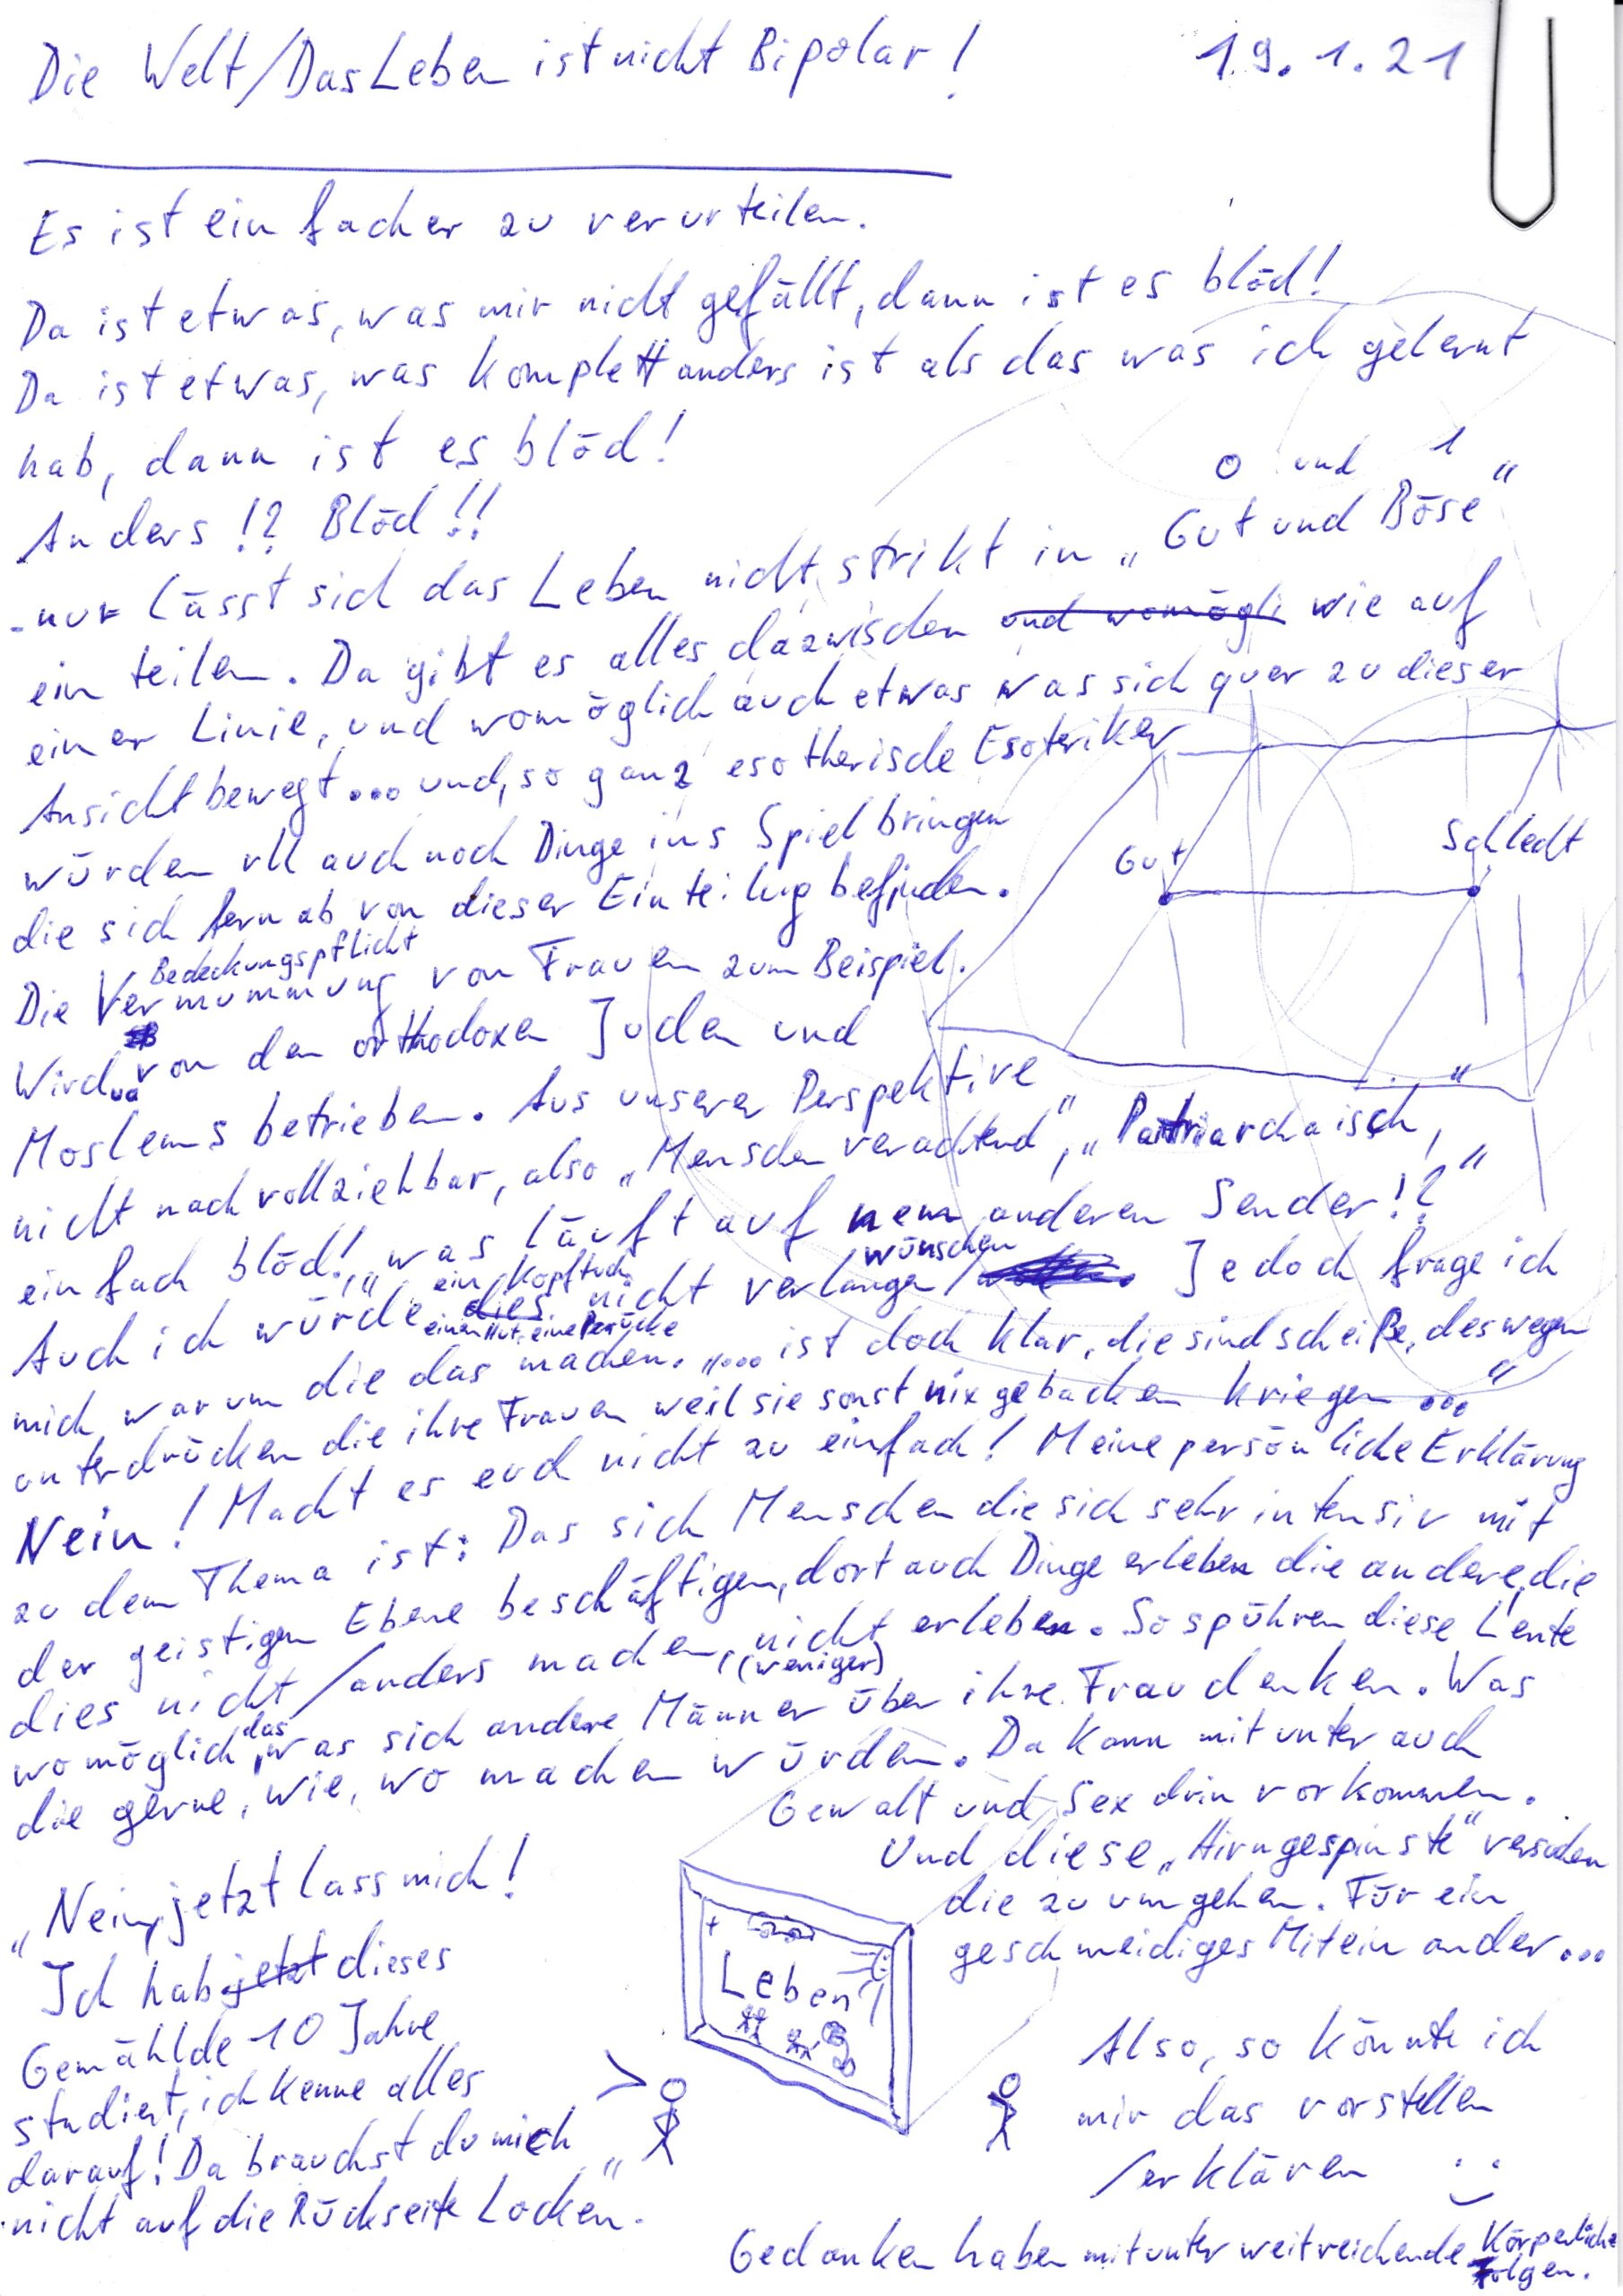 Die Welt/Das Leben ist nicht Bipolar!
19.1.21
Es ist einfacher zu verurteilen.
Da ist etwas, was mir nicht gefällt, dann ist es blöd!
Da ist etwas, was komplett anders ist als das was ich gelernt
hab, dann ist es blöd!
Anders!? Blöd!!
0 und 1
-nur lässt sich das Leben nicht strikt in „Gut und Böse"
ein teilen. Da gibt es alles dazwischen und womögli wie auf
einer Linie, und womöglich auch etwas was sich quer zu dieser
Ansicht bewegt... und, so ganz esotherische Esoteriker
würden vll auch noch Dinge ins Spiel bringen
die sich fernab von dieser Einteilug befinden.
Gut
Schlecht
Bedeckungspflicht
Die Vermummung von Frauen zum Beispiel.
Wird ua von den orthodoxen Juden und
Moslems betrieben. Aus unserer Perspektive
nicht nachvollziehbar, also „Menschenverachtend", „Patriarchaisch",
einfach blöd! „was läuft auf nem anderen Sender!?"
ein Kopftuch wünschen
Auch ich würde dies nicht verlangen/ Jedoch frage ich
einen Hut, eine Perücke
mich warum die das machen. „... ist doch klar, die sind scheiße, deswegen
unterdrücken die ihre Frauen weil sie sonst nix gebacken kriegen ..."
Nein! Macht es euch nicht zu einfach! Meine persönliche Erklärung
zu dem Thema ist: Das sich Menschen die sich sehr intensiv mit
der geistigen Ebene beschäftigen, dort auch Dinge erleben die andere, die
dies nicht/anders machen, nicht erleben. So spühren diese Leute
(weniger)
womöglich das, was sich andere Männer über ihre Frau denken. Was
die gerne, wie, wo machen würden. Da kann mitunter auch
Gewalt und Sex drin vorkommen.
Und diese „Hirngespinste" versuchen
die zu umgehen. Für ein
geschmeidiges Miteinander...
„Nein, jetzt lass mich!
Ich hab jetzt dieses
Gemählde 10 Jahre
studiert, ich kenne alles
darauf! Da brauchst du mich
nicht auf die Rückseite Locken."
Leben
Also, so könnte ich
mir das vorstellen
/erklären
Gedanken haben mitunter weitreichende Körperliche
Folgen.